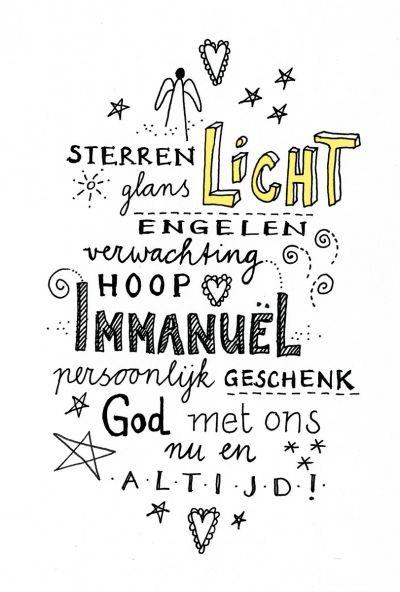 STERREN LiCHT
glans
ENGELEN
verwachting
HOOP
IMMANUËL
persoonlijk GESCHENK
God met ons
nu en
A.L.T.I.J.D!